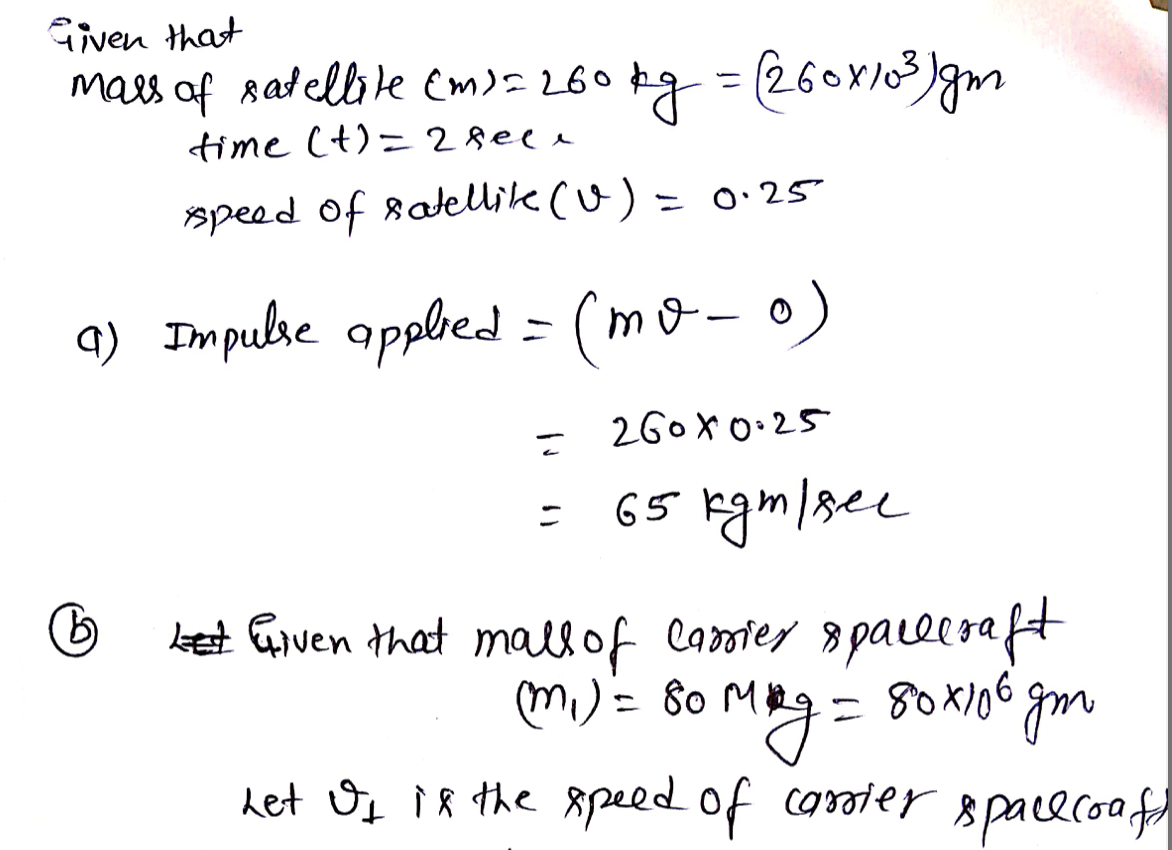 Given that
mass of satellite (m) = 260 kg = (260×10³)gm
time (t) = 2 sec
speed of satellite (v) = 0.25
a) Impulse applied = (mv - 0)
= 260 × 0.25
= 65 kgm/sec
b Given that mass of carrier spacecraft
(m₁) = 80 Mg = 80×10⁶ gm
Let v₁ is the speed of carrier spacecraft